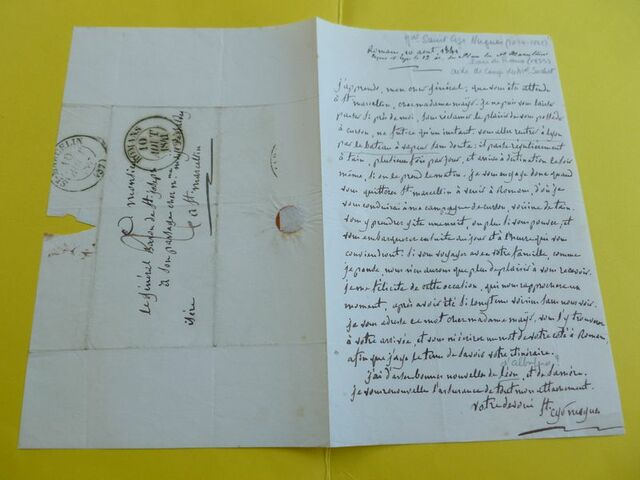 gal Saint Cyr Nugues (1774-1842)
Romans, 10 août, 1841
Pair de France (1832)
aide de Camp du Mal Suchet
j'apprends, mon cher général, que vous êtes attendu
à St marcellin, chez madame mayo. Je ne puis vous laisser
passer si près de moi, sans réclamer le plaisir de vous posséder
à curson, ne fut-ce qu'un instant. vous allez rentrer à Lyon
par le bateau à vapeur sans doute; il passe régulièrement
à tain, plusieurs fois par jour, et arrive à destination le soir
même, si on le prend le matin. Je vous engage donc quand
vous quitterez St marcellin à venir à Romans, d'où je
vous conduirai à ma campagne de curson, voisine de tain.
vous y prendrez gîte une nuit, ou plus si vous pouvez, et
vous embarquerez ensuite au jour et à l'heure qui vous
conviendront. si vous voyagez avec votre famille, comme
je pense, nous n'en aurons que plus de plaisir à vous recevoir.
je me félicite de cette occasion, qui nous rapprochera un
moment, après avoir été si longtems voisins sans nous voir.
Je vous adresse ce mot chez madame mayo, vous l'y trouverez
à votre arrivée, et vous m'écrirez un mot de votre côté à Romans,
afin que j'aye le tems de savoir votre itinéraire.
d'Albuféra
j'ai d'assez bonnes nouvelles de Léon, et de sa mère.
je vous renouvelle l'assurance de tout mon attachement.
votre dévoué St cyr nugues
ROMANS
10
AOUT
1841
ST MARCELLIN
(37)
à monsieur
le général Baron de St Joseph
à son passage chez mme mayo
à St marcellin
isère